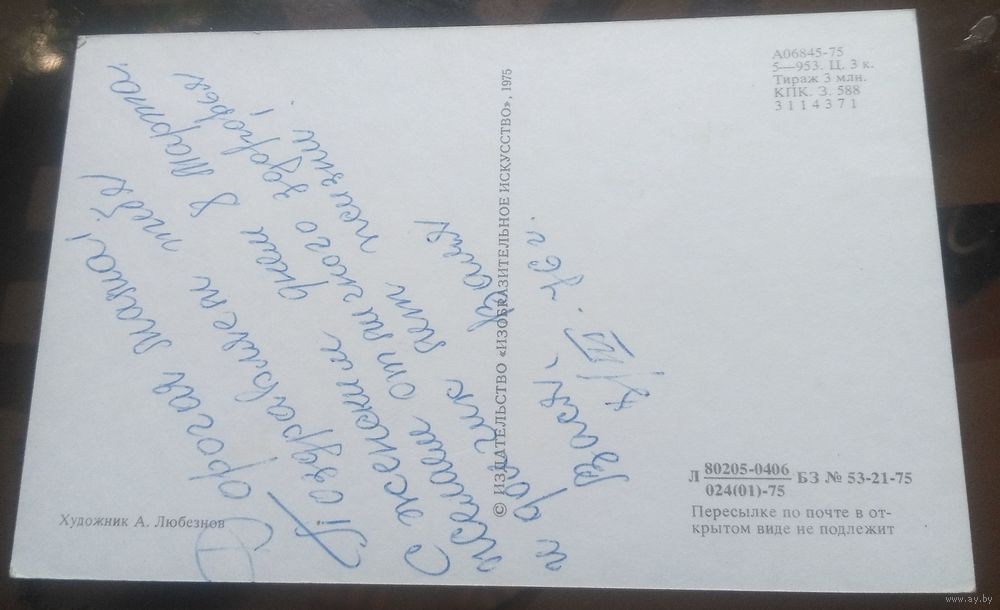 А06845-75
5—953. Ц. 3 к.
Тираж 3 млн.
КПК. З. 588
3114371
© ИЗДАТЕЛЬСТВО «ИЗОБРАЗИТЕЛЬНОЕ ИСКУССТВО», 1975
Дорогая мама!
Поздравляем тебя
С женским днем 8 Марта.
желаем отличного здоровья
и долгих лет жизни!
Ваши
Вася.
/III. 76 г.
Художник А. Любезнов
Л 80205-0406 БЗ № 53-21-75
024(01)-75
Пересылке по почте в от-
крытом виде не подлежит
www.ay.by